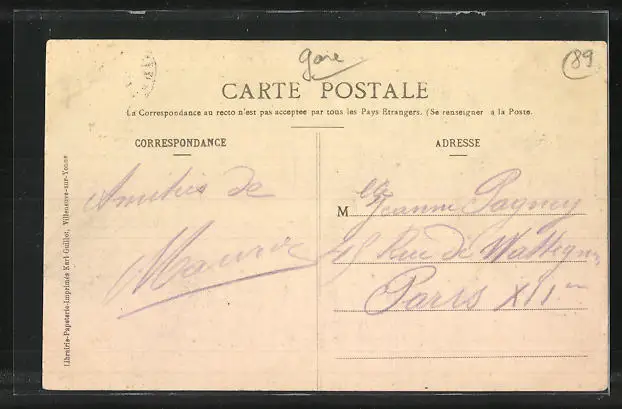 gare
89
CARTE POSTALE
La Correspondance au recto n'est pas acceptée par tous les Pays Etrangers. (Se renseigner à la Poste.
CORRESPONDANCE
Amitiés de
Maurice
ADRESSE
M elle Jeanne Pagney
45 Rue de Wattignies
Paris XII em
Librairie-Papeterie-Imprimés Karl Guillot, Villeneuve-sur-Yonne